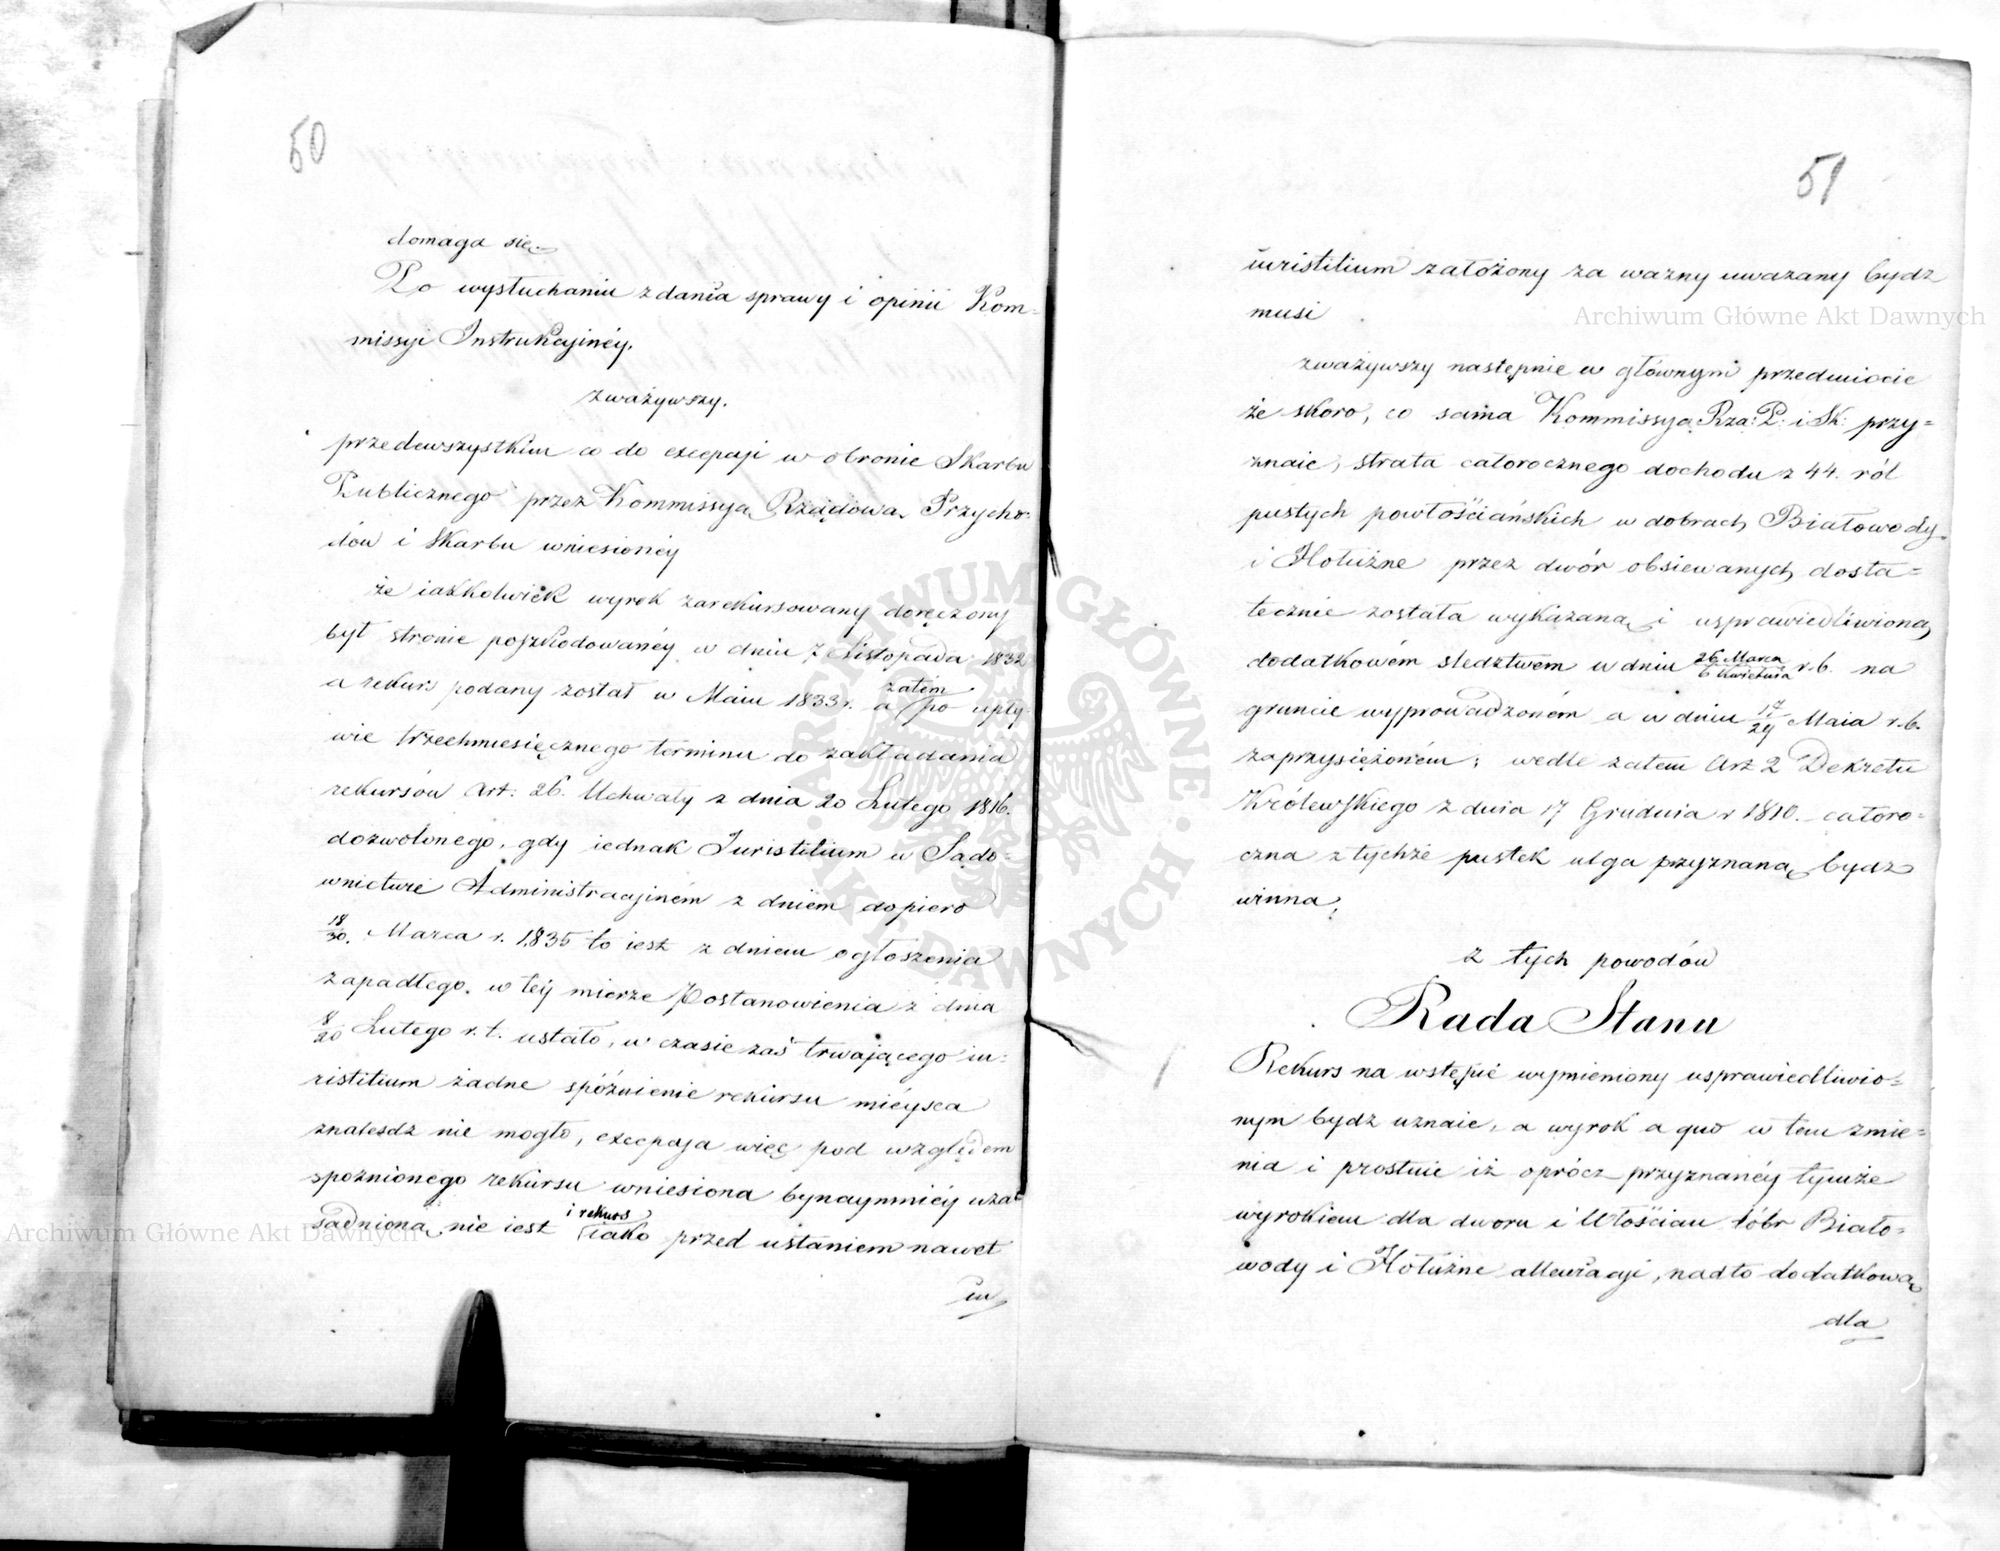 50
domaga się.
Po wysłuchaniu zdania sprawy i opinii Kom-
missyi Instrukcyinéy.
zważywszy.
przedewszystkim co do excepcyi w obronie Skarbu
Publicznego przez Kommissyą Rządową Przycho-
dów i Skarbu wniesionéy
że iakkolwiek wyrok zarekursowany doręczony
był stronie poszkodowanéy w dniu 7 Listopada 1832
a rekurs podany został w Maiu 1833 r. a zatém po upły-
wie trzechmiesięcznego terminu do zakładania
rekursów Art: 26. Uchwały z dnia 20 Lutego 1816.
dozwolonego, gdy iednak Iuristitium w Sądo-
wnictwie Administracyiném z dniem dopiero
18/30. Marca r. 1835 to iest z dniem ogłoszenia
zapadłego w téy mierze Postanowienia z dnia
8/20 Lutego r. t. ustało, w czasie zaś trwaiącego iu-
ristitium żadne spóźnienie rekursu miéysca
znalesdz nie mogło, excepcya więc pod względem
spoznionego rekursu wniesiona bynaymniéy uza-
sadnioną nie iest i rekurs iako przed ustaniem nawet
iu
51
iuristitium założony za ważny uważany bydz
musi
zważywszy następnie w głównym przedmiocie
że skoro, co sama Kommissya Rza: P: i Sk: przy-
znaie, strata całorocznego dochodu z 44. ról
pustych powłościańskich w dobrach Białowody
i Hotużne przez dwór obsiewanych dosta-
tecznie została wykazaną i usprawiedliwioną
dodatkowém sledztwem w dniu 26 Marca/6 Kwietnia r. b. na
gruncie wyprowadzoném a w dniu 17/29 Maia r. b.
zaprzysiężoném; wedle zatem Art 2 Dekretu
Królewskiego z dnia 17 Grudnia r 1810. całoro-
czna z tychże pustek ulga przyznaną bydz
winna,
z tych powodów
Rada Stanu
Rekurs na wstępie wymieniony usprawiedliwio-
nym bydz uznaie, a wyrok a quo w tem zmie-
nia i prostuie iż oprócz przyznanéy tymże
wyrokiem dla dworu i Włościan dóbr Biało-
wody i Hotużne allewiacyi, nadto dodatkową
dla
Archiwum Główne Akt Dawnych
Archiwum Główne Akt Dawnych
ARCHIWUM GŁÓWNE · AKT DAWNYCH ·